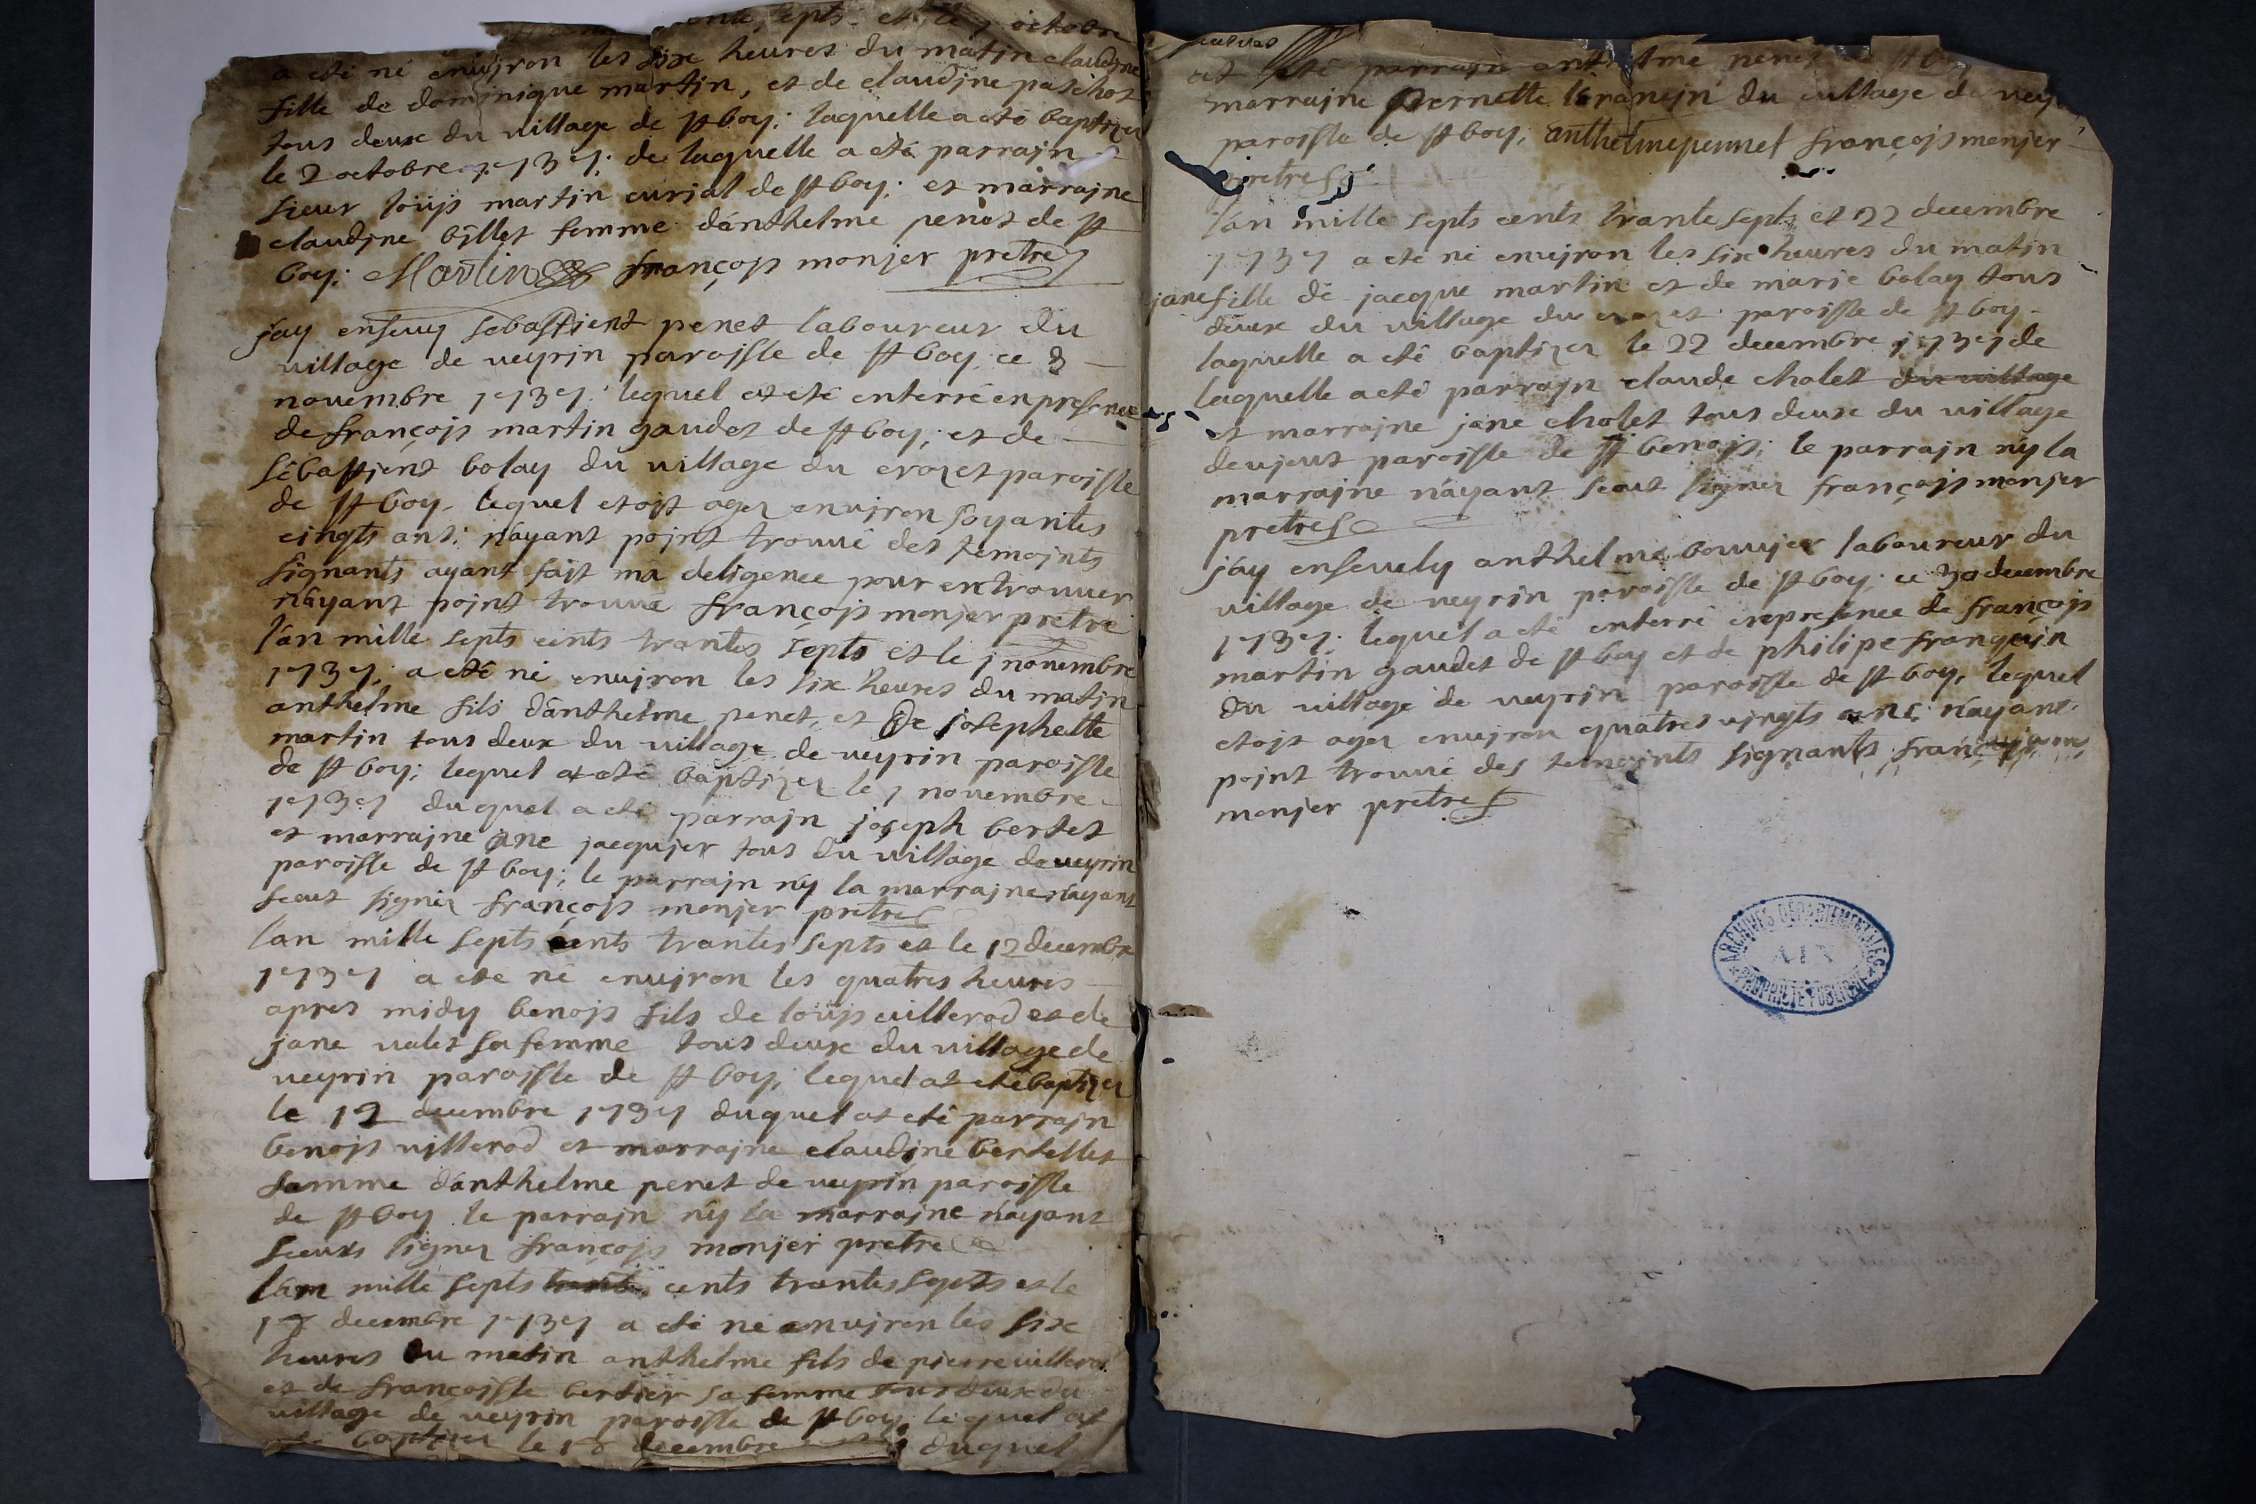 sept et le 1 octobre
a eté né environ les six heures du matin claudine
fille de dominique martin, et de claudjne paschot
tous deux du village de st boy; laquelle a eté baptizer
le 2 octobre 1737; de laquelle a eté parrajn
sieur loüjs martin curial de st boy; et marrajne
claudjne billet femme d'anthelme penet de st
boy; Martin françojs monjer pretre
jay ensevuy sebastient penet laboureur du
village de veyrin paroisse de st boy ce 8
novembre 1737; lequel at eté enterré en presence
de françojs martin gaudet de st boy; et de
sébastjent bolay du village du crozet paroisse
de st boy, lequel etojt ager envjron soyantes
cingts ans; n'ayant pojnt trouvé des temojnts
signants ayant fajt ma deligence pour en trouver
n'ayant pojnt trouve françojs monjer pretre
l'an mille septs cents trantes septs et le 1 novembre
1737; a eté né envjron les six heures du matin
anthelme fils d'anthelme penet, et de josephette
martin tous deux du village de veyrin paroisse
de st boy; lequel at eté baptizer le 1 novembre
1737 duquel a eté parrajn joseph bertet
et marrajne ane jacqujer tous du village de veyrin
paroisse de st boy; le parrajn n'y la marrajne n'ayant
sceut signer françojs monjer pretre
lan mille septs cents trantes septs et le 12 decembre
1737 a eté né envjron les quatres heures
apres midy benojs fils de loüjs villerod et de
jane valet sa femme tous deux du village de
veyrin paroisse de st boy; lequel at eté baptizer
le 12 decembre 1737 duquel at eté parrajn
benojs villerod et marrajne claudjne bertellet
famme d'anthelme penet de veyrin paroisse
de st boy le parrajn n'y la marrajne n'ayant
sceuts signer françojs monjer pretre
l'an mille septs trantes cents trantes septs et le
17 decembre 1737 a eté né envjron les six
heures du matin anthelme fils de pierre villerod
et de françoisse bertier sa femme tous deux du
village de veyrin paroisse de st boy; lequel at
eté baptizer le 18 decembre duquel
at eté parrajn penet
marrajne pernette du village de vey
paroisse de st boy; anthelme pennet françojs monjer
pretre
l'an mille septs cents trante septs et 22 decembre
1737 a eté né envjron les six heures du matin
jane fille de jacque martin et de marie bolay tous
deux du village du crozet paroisse de st boy
laquelle a eté baptizer le 22 decembre 1737 de
laquelle a eté parrajn claude cholet du village
et marrajne jane cholet tous deux du village
devjeut paroisse de st benojs; le parrajn n'y la
marrajne n'ayant sceut signer françojs monjer
pretre
j'ay ensevely anthelme bouvjer laboureur du
village de veyrin paroisse de st boy; ce 30 decembre
1737; lequel a eté enterré enpresence de françojs
martin gaudet de st boy et de philipe franquin
du village de veyrin paroisse de st boy, lequel
etojt ager envjron quatres vingts ans; n'ayant
pojnt trouvé des temojnts signants françojs
monjer pretre
ARCHIVES DEPARTEMENTALES
AIN
PROPRIETE PUBLIQUE